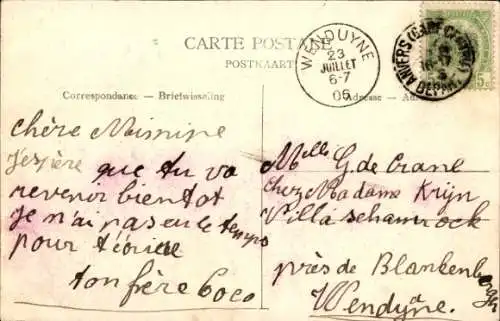 CARTE POSTALE
POSTKAART
WENDUYNE
23
JUILLET
6-7
06
ANVERS (GARE CENTRALE)
DEPART
5c
Correspondance — Briefwisseling
Adresse — Ad
chère Mimine
j'espère que tu va
revenir bientot
je n'ai pas eu le temps
pour t'écrire
ton frère Coco
Melle G. de Crane
chez Madame Krijn
Villa schamrock
près de Blankenberghe
Wendyne.